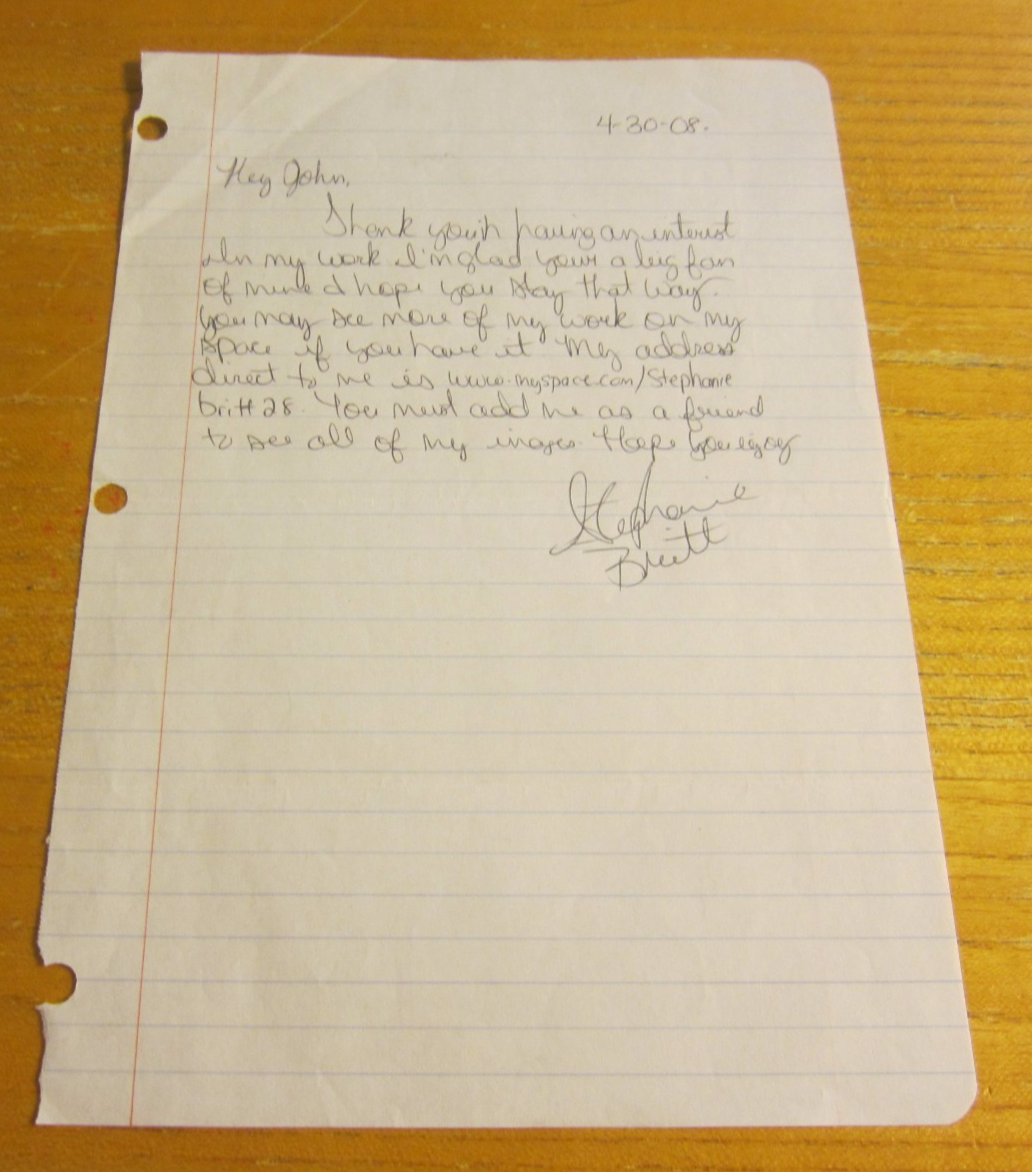 4-30-08.
Hey John,
Thank you having an interest
In my work I'm glad your a big fan
of mine I hope you stay that way.
You may see more of my work on my
space if you have it My address
direct to me is www.myspace.com/Stephanie
britt28. You must add me as a friend
to see all of my images. Hope you enjoy
Stephanie
Britt